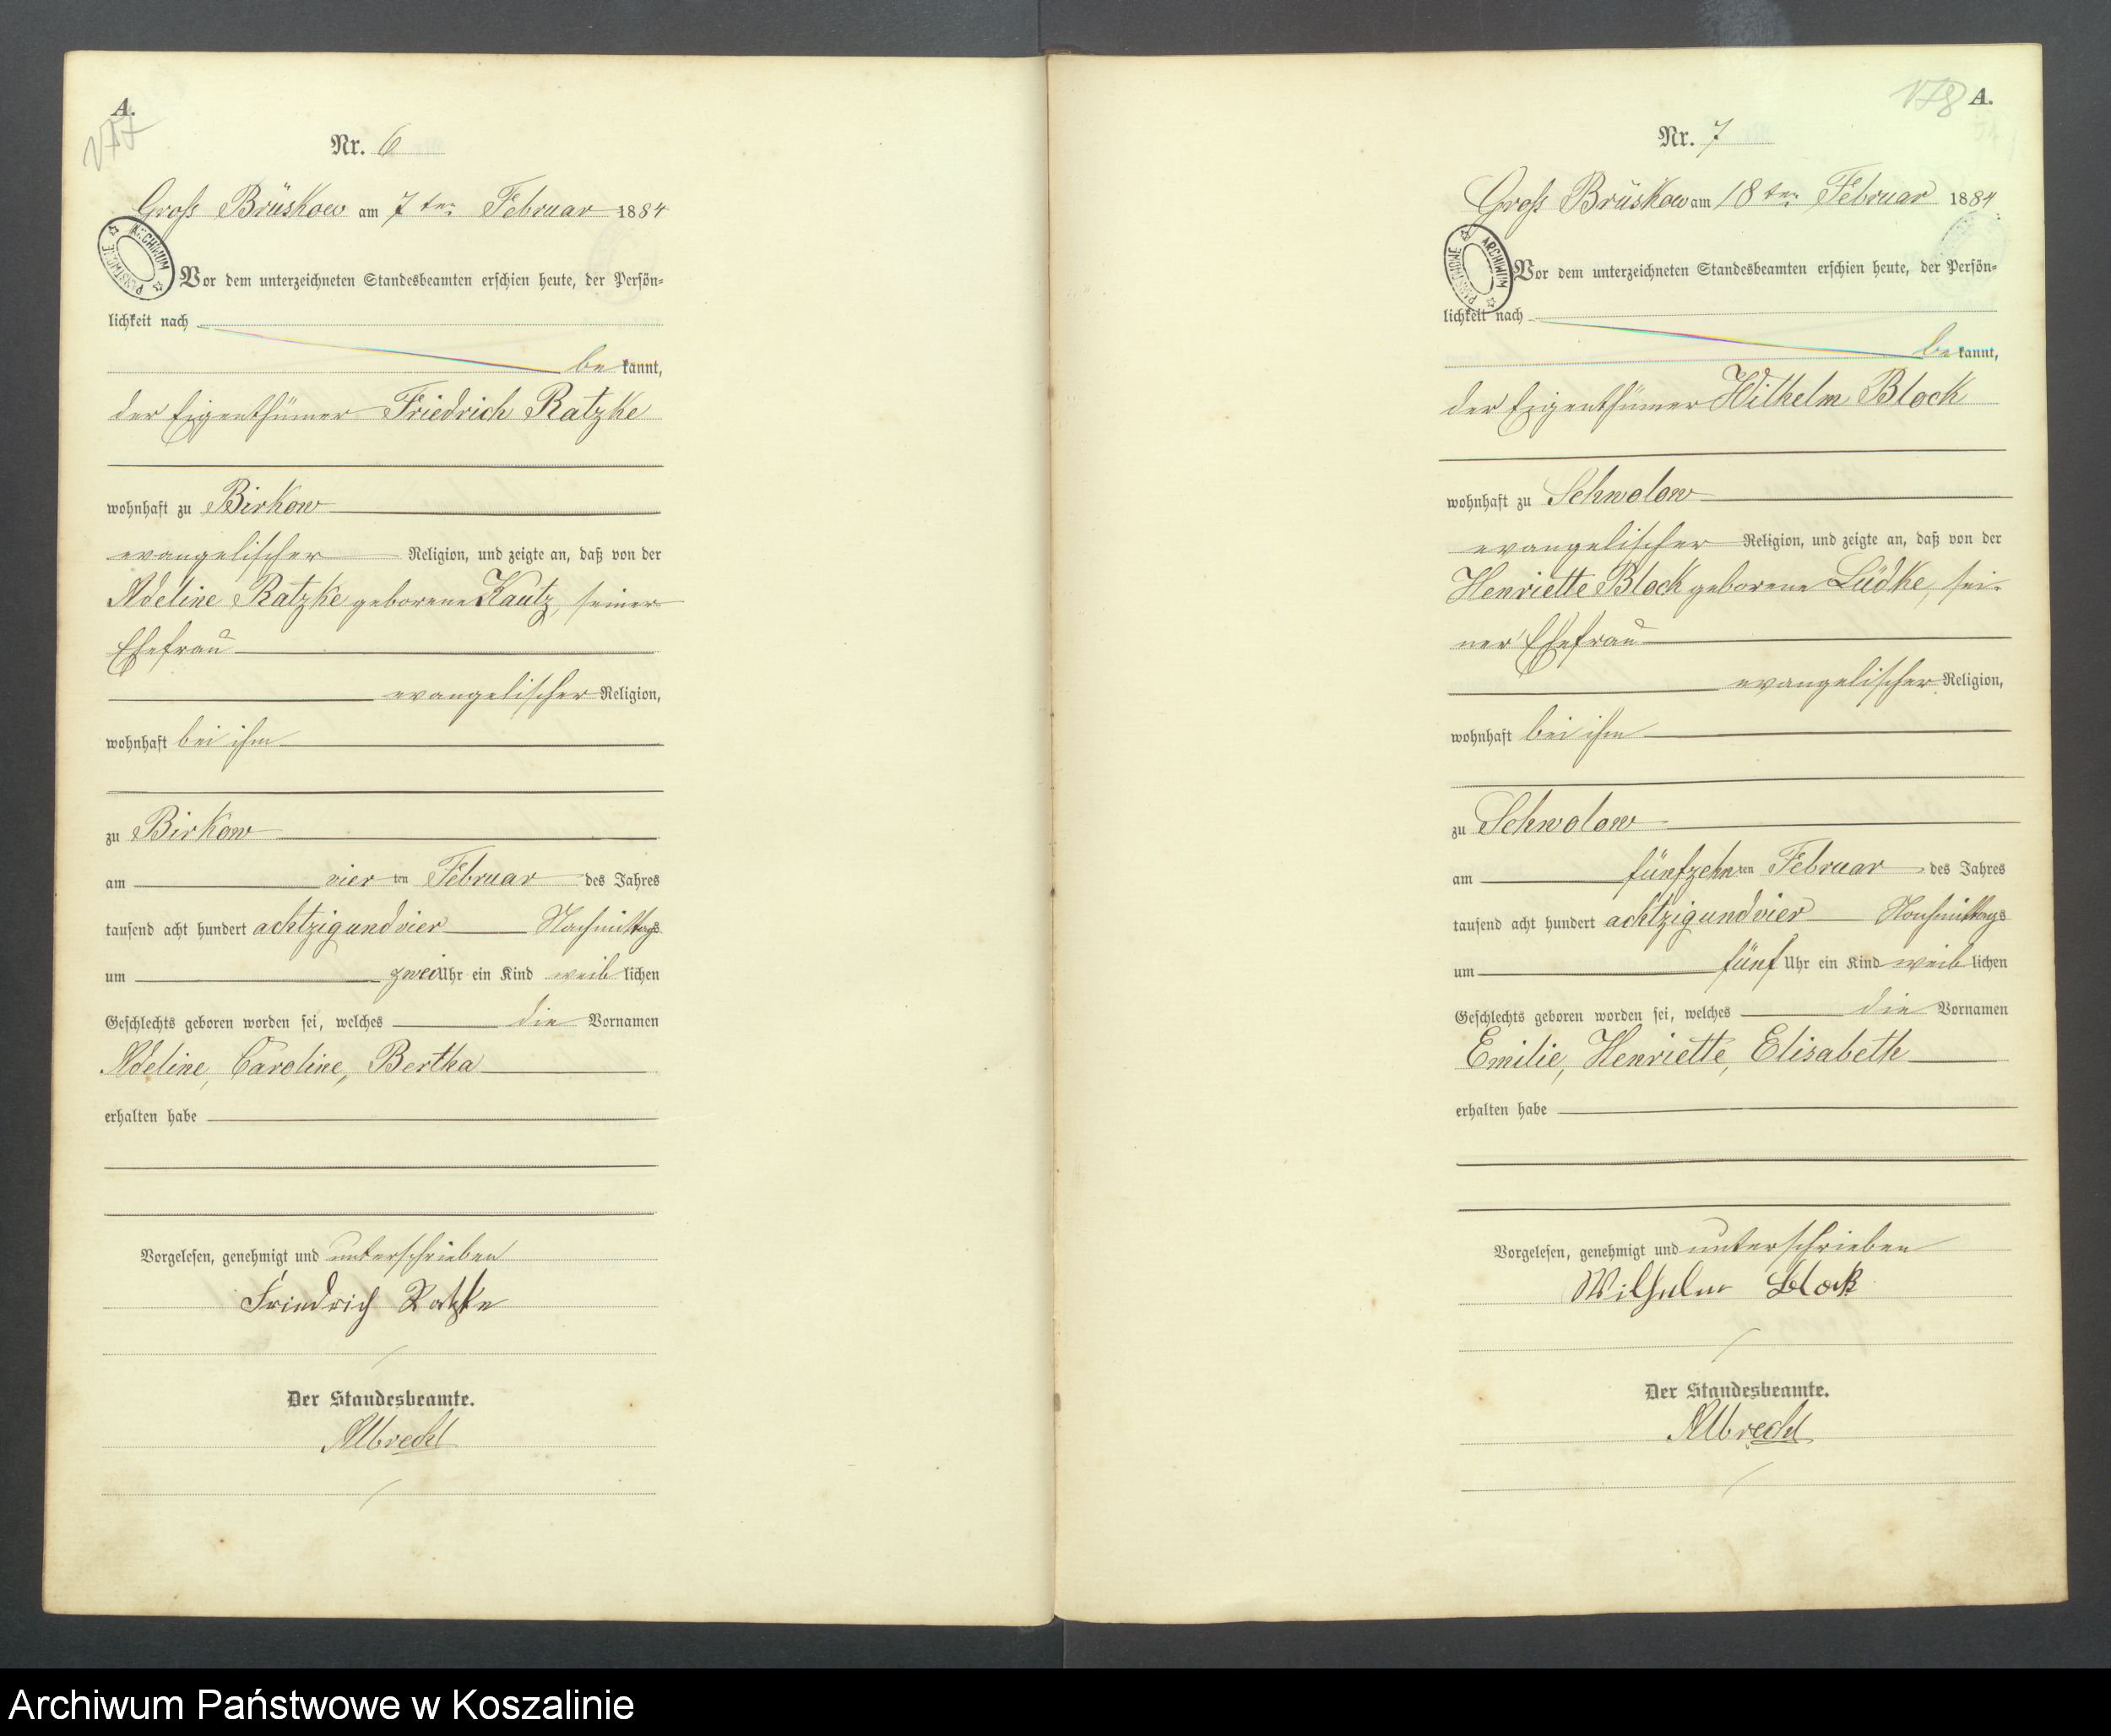 A.
177
Nr. 6
Groß Brüskow am 7ten Februar 1884
ARCHIWUM PAŃSTWOWE
Vor dem unterzeichneten Standesbeamten erschien heute, der Persön-
lichkeit nach
be kannt,
der Eigenthümer Friedrich Ratzke
wohnhaft zu Birkow
evangelischer Religion, und zeigte an, daß von der
Adeline Ratzke geborene Kautz, seiner
Ehefrau
evangelischer Religion,
wohnhaft bei ihm
zu Birkow
am vier ten Februar des Jahres
tausend acht hundert achtzigundvier Nachmittags
um zwei Uhr ein Kind weib lichen
Geschlechts geboren worden sei, welches die Vornamen
Adeline, Caroline, Bertha
erhalten habe
Vorgelesen, genehmigt und unterschrieben
Friedrich Ratzke
Der Standesbeamte.
Albrecht
178 A.
Nr. 7
Groß Brüskow am 18ten Februar 1884
ARCHIWUM PAŃSTWOWE
Vor dem unterzeichneten Standesbeamten erschien heute, der Persön-
lichkeit nach
be kannt,
der Eigenthümer Wilhelm Block
wohnhaft zu Schwolow
evangelischer Religion, und zeigte an, daß von der
Henriette Block geborene Lüdke, sei-
ner Ehefrau
evangelischer Religion,
wohnhaft bei ihm
zu Schwolow
am fünfzehn ten Februar des Jahres
tausend acht hundert achtzigundvier Nachmittags
um fünf Uhr ein Kind weib lichen
Geschlechts geboren worden sei, welches die Vornamen
Emilie, Henriette, Elisabeth
erhalten habe
Vorgelesen, genehmigt und unterschrieben
Wilhelm Block
Der Standesbeamte.
Albrecht
Archiwum Państwowe w Koszalinie